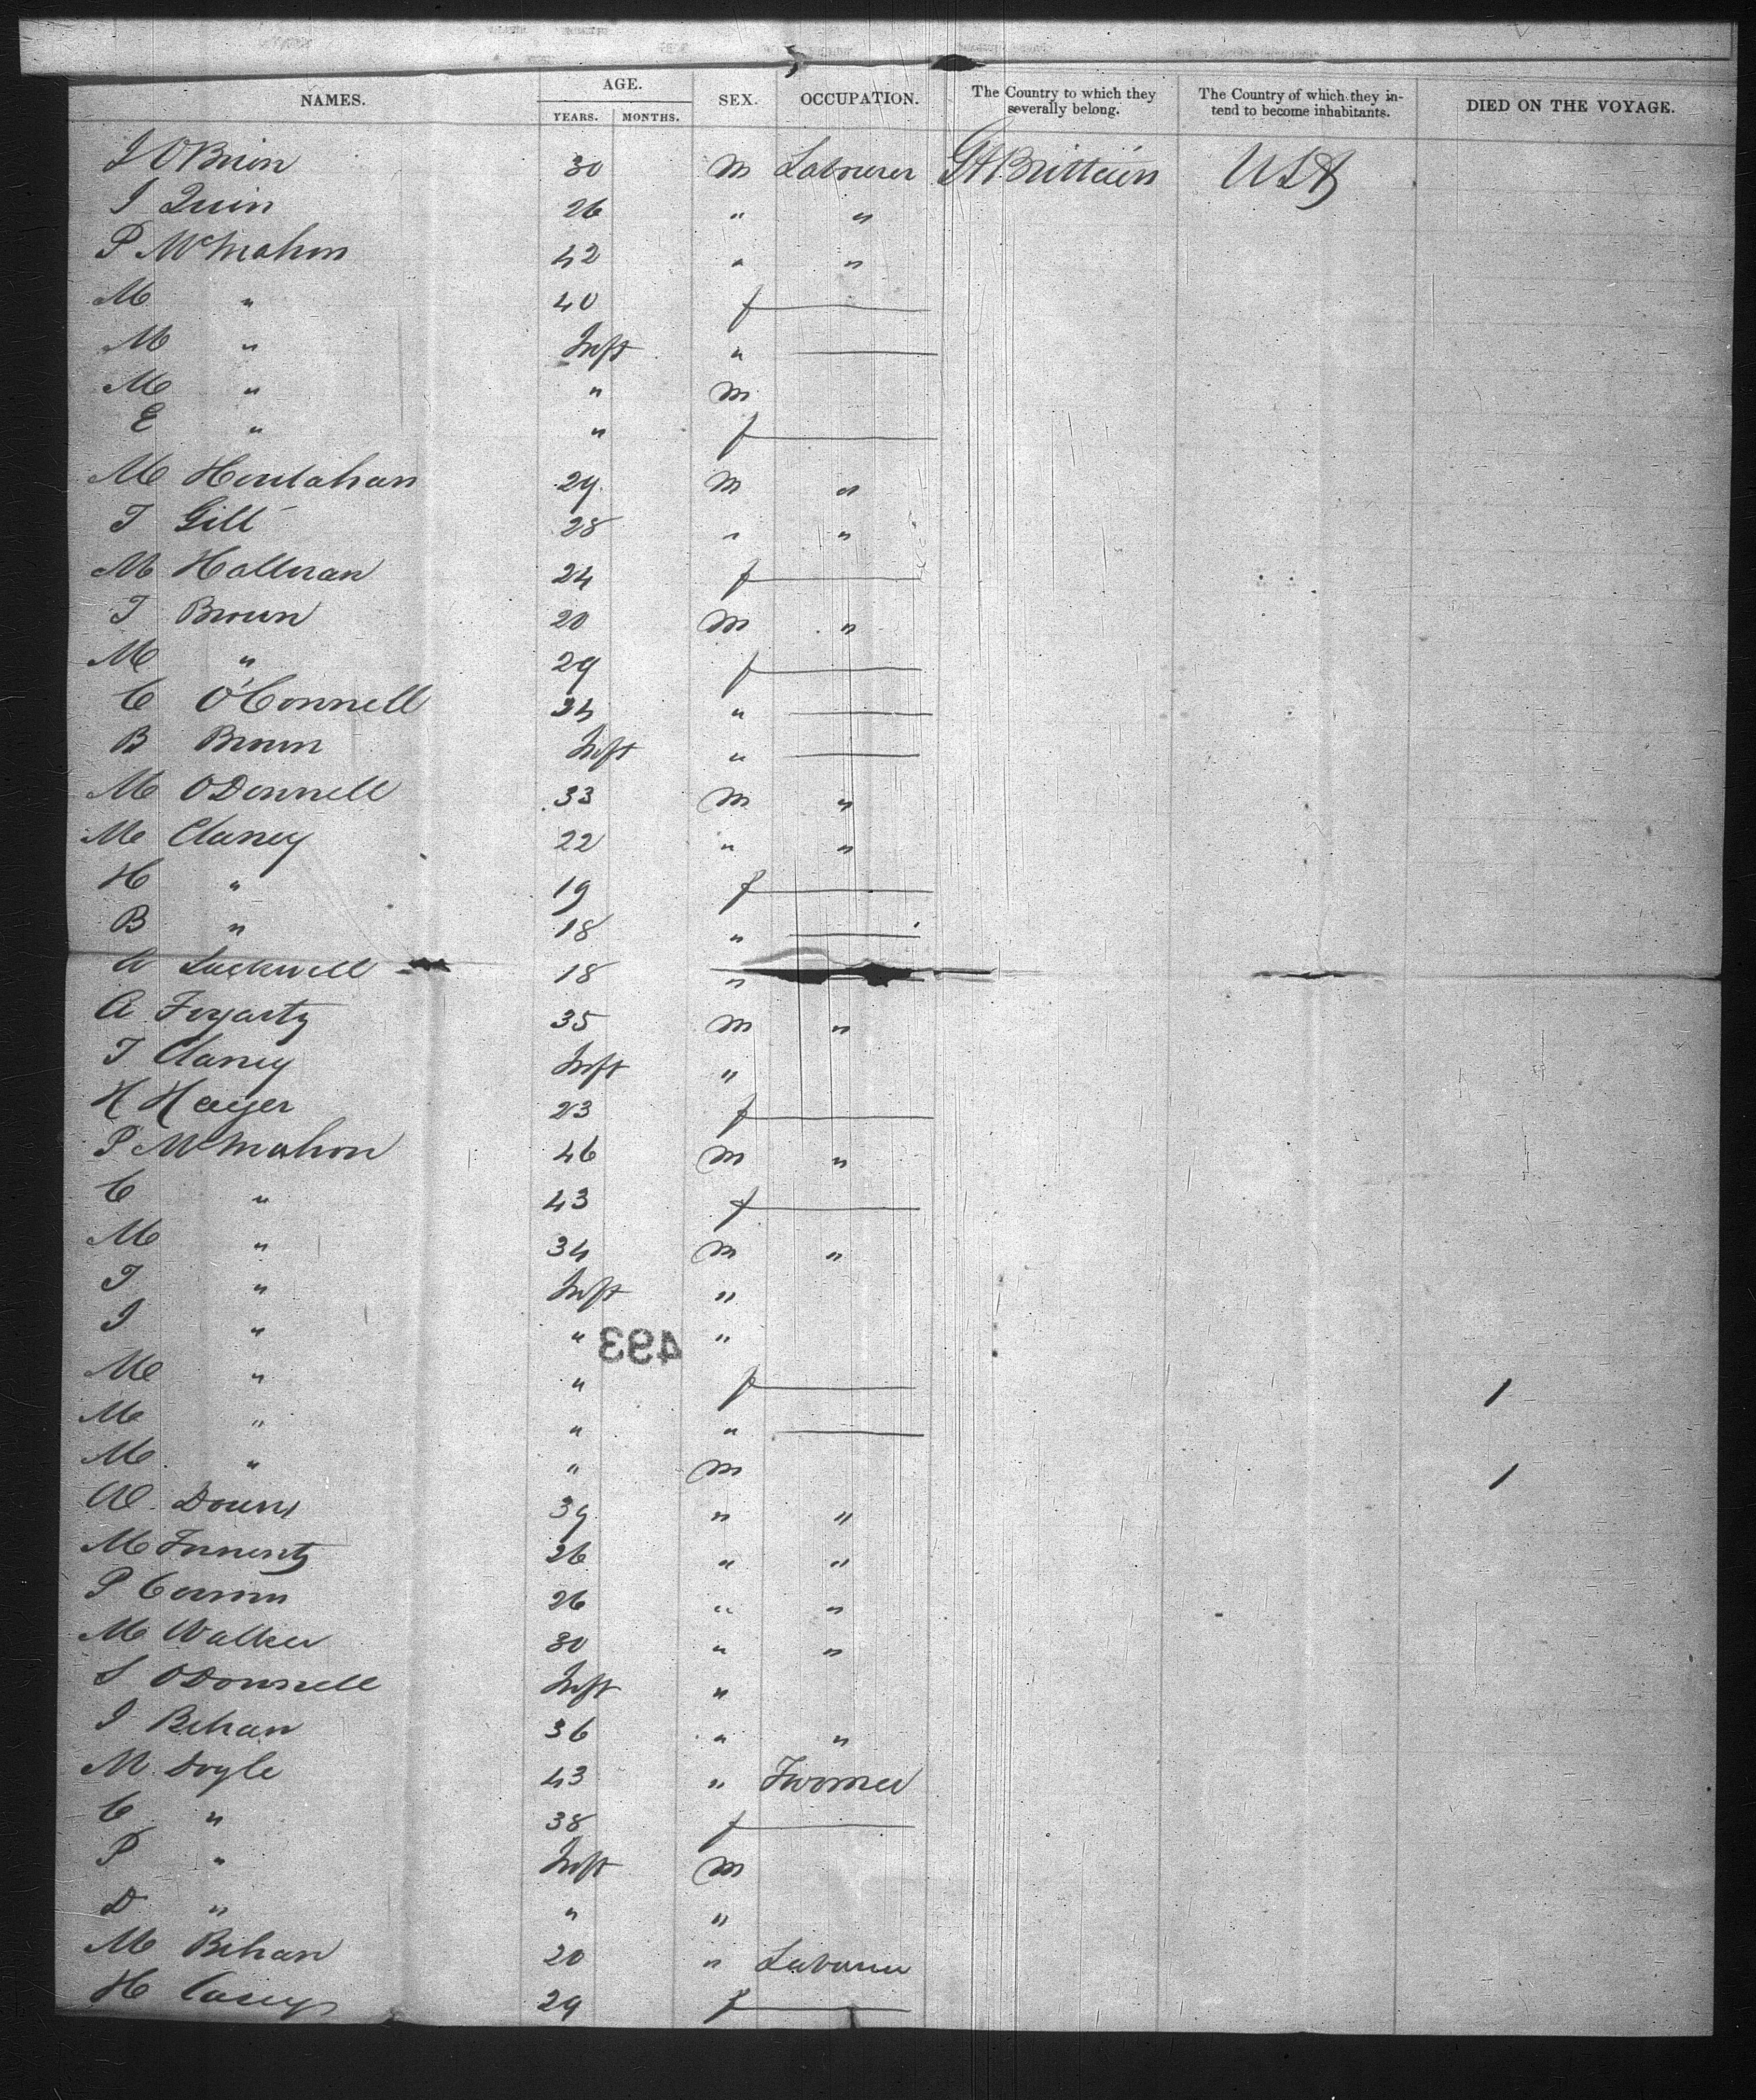 NAMES. AGE. YEARS. MONTHS. SEX. OCCUPATION. The Country to which they severally belong. The Country of which they in-tend to become inhabitants. DIED ON THE VOYAGE.
J O'Brien 30 m Labourer Gt Brittain USA
J Quin 26 " "
P McMahon 42 " "
M " 40 f
M " Inft "
M " " m
E " " f
M Houlahan 29 m "
T Gill 28 " "
M Halleran 24 f
T Brown 20 m "
M " 29 f
C O'Connell 24 "
B Brown Inft "
M ODonnell 33 m "
M Clancy 22 " "
H " 19 f
B " 18 "
Luckwell 18 "
A Fogarty 35 m "
T Clancy Inft "
H Hayes 23 f
P McMahon 46 m "
C " 43 f
M " 34 m "
T " Inft "
J " " "
493
M " " f 1
M " " "
M " " m 1
W Downs 39 " "
M 26 " "
P 26 " "
M Walker 30 " "
S ODonnell Inft "
J Behan 36 " "
M Doyle 43 " Farmer
C " 38 f
P " Inft m
D " " "
M Behan 20 " Labourer
H Casey 29 f